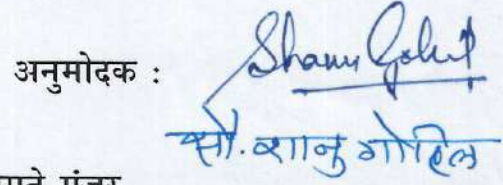 अनुमोदक :
Shanu Gohil
सौ. शानु गोहिल